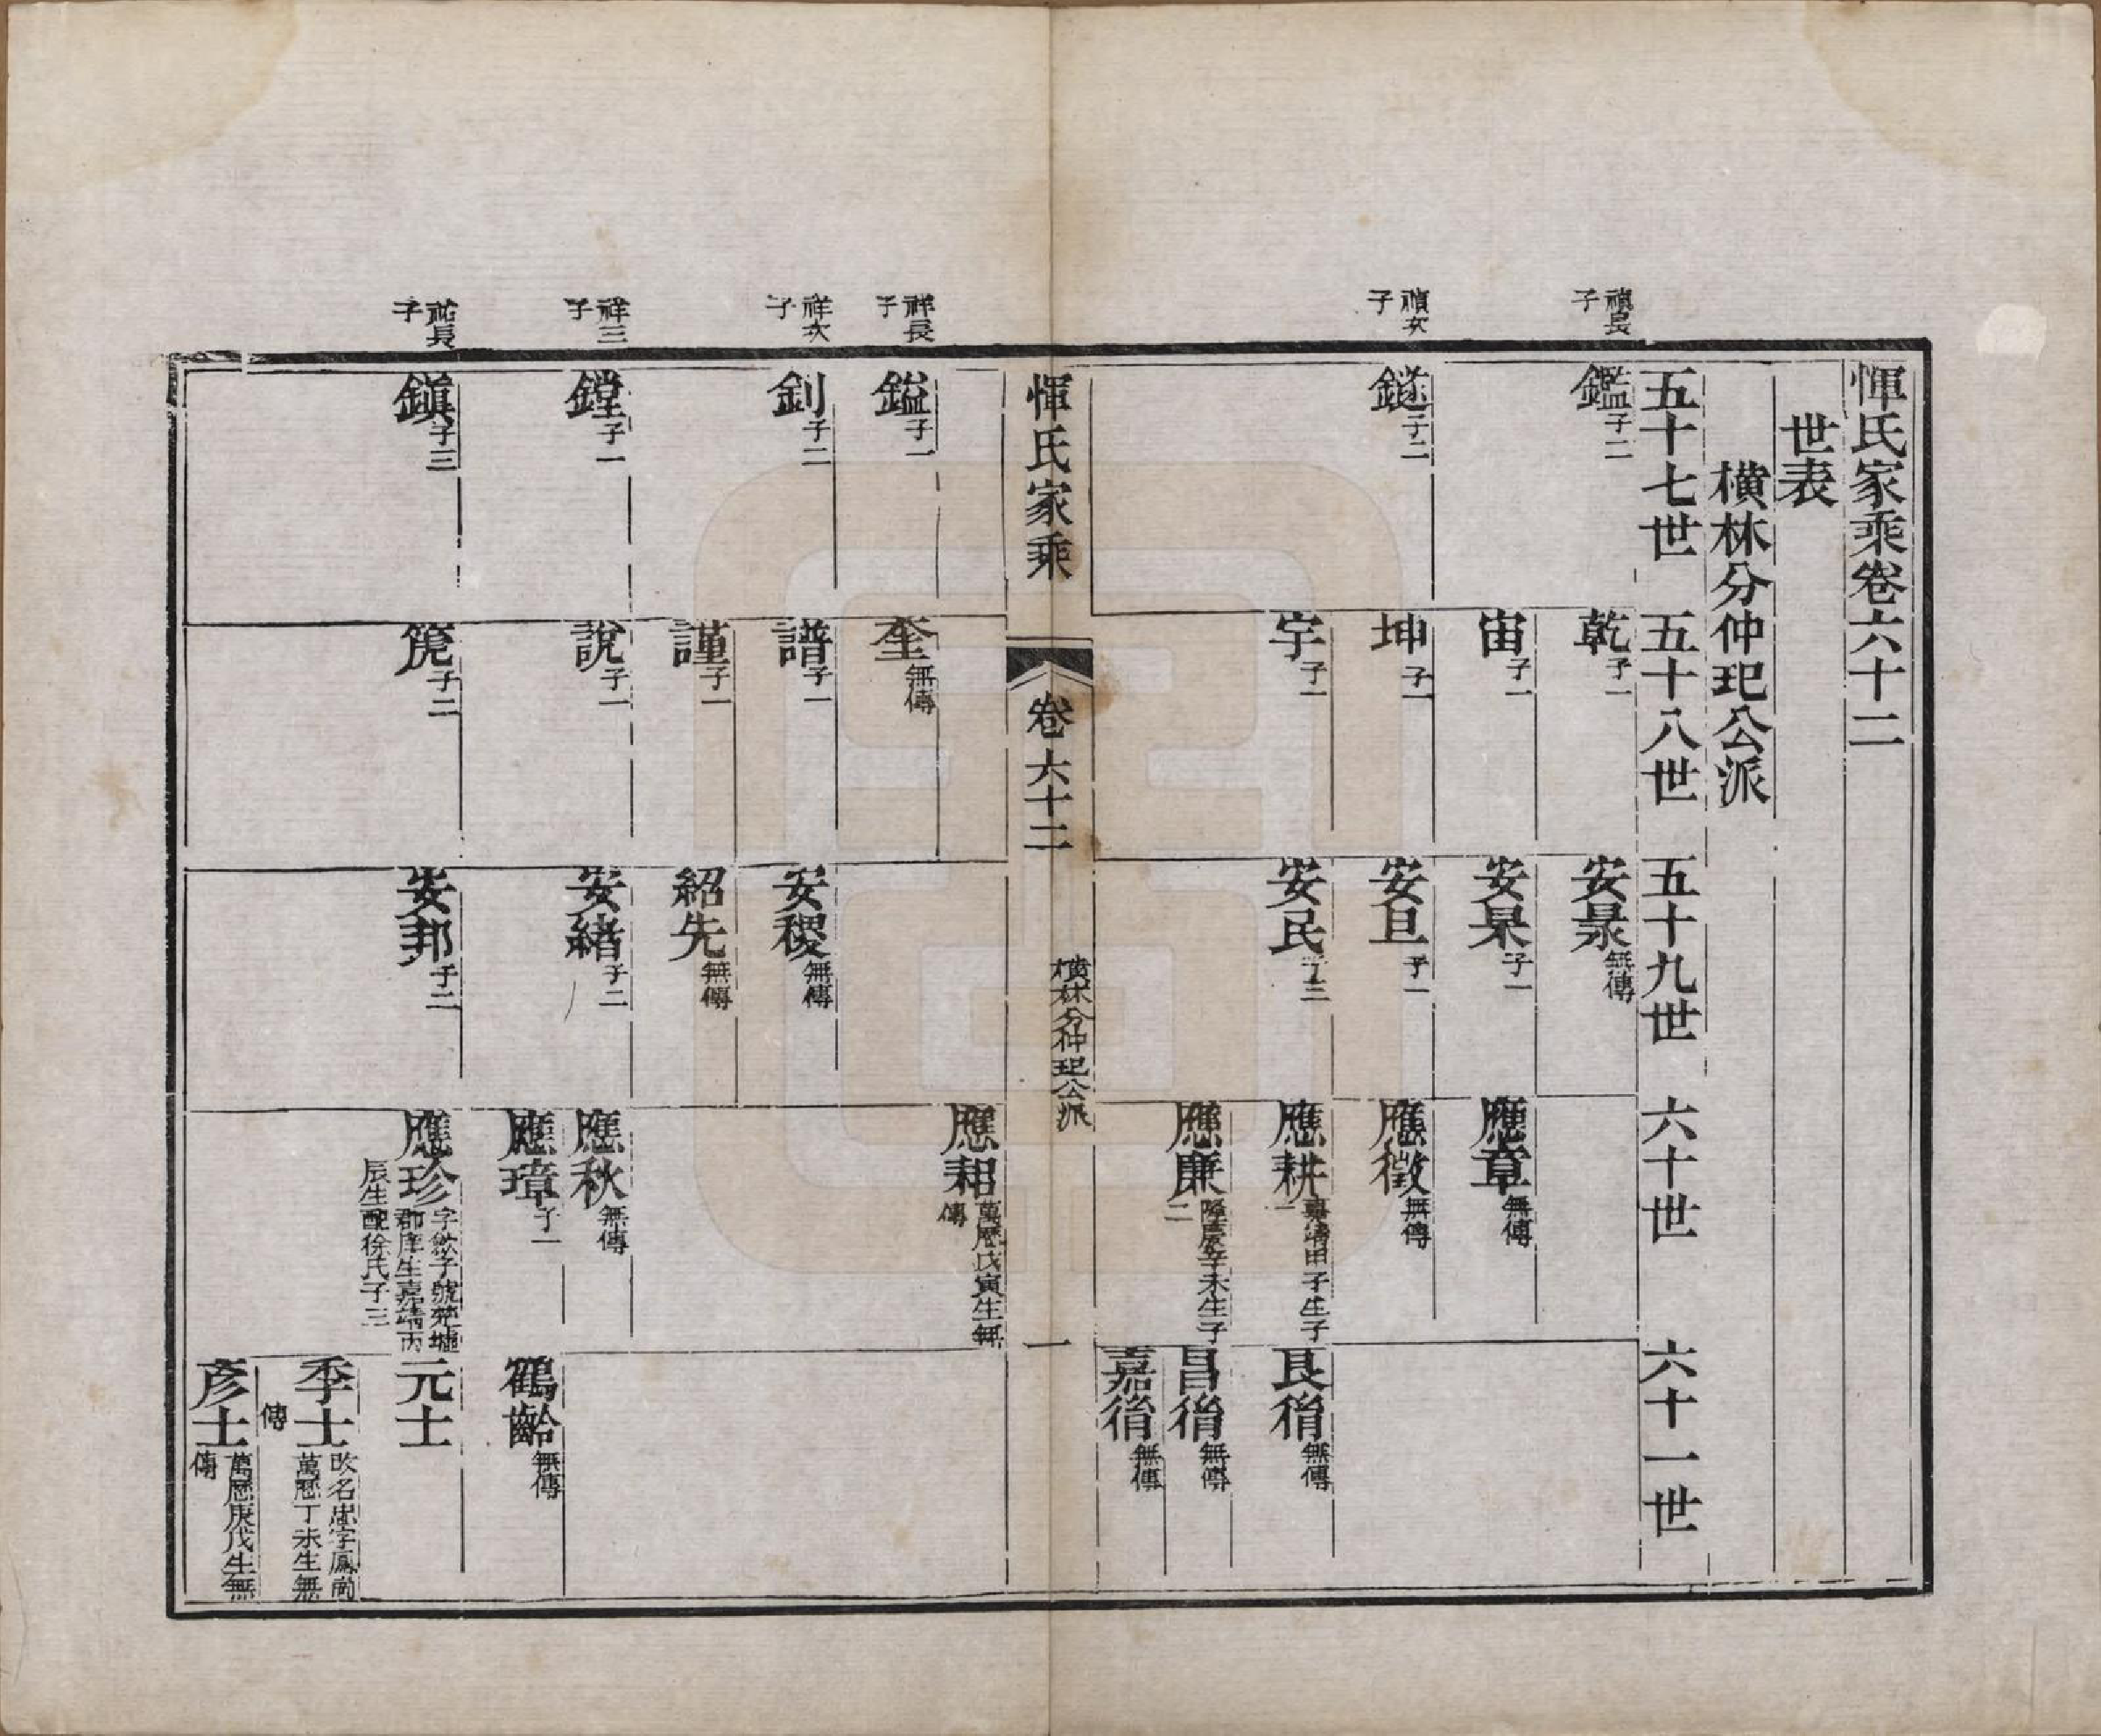 惲氏家乘卷六十二
世表
橫林分仲玘公派
五十七世 五十八世 五十九世 六十世 六十一世
禎長子
鑑子二 乾子一 安㬎無傳
宙子一 安杲子一 應章無傳
禎次子
鐩子二 坤子一 安旦子一 應徵無傳
宇子一 安民子三 應耕嘉靖甲子生子一 艮㣧無傳
應廉隆慶辛未生子二 昌㣧無傳
嘉㣧無傳
惲氏家乘 卷六十二 橫林分仲玘公派 一
應耜萬歷戊寅生無傳
祥長子
鎰子一 奎無傳
祥次子
釗子二 譜子一 安稷無傳
謹子一 紹先無傳
祥三子
鏜子一 說子一 安緒子二 應秋無傳
應璋子一 鶴齡無傳
祐長子
鎭子三 箎子二 安邦子二 應珍字 子號楚墟郡庠生嘉靖丙辰生配徐氏子三 元士
季士改名忠字鳳尚萬歷丁未生無傳
彥士萬歷庚戌生無傳